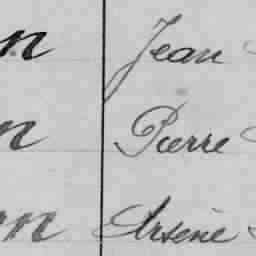 n Jean
n Pierre
n Arsène